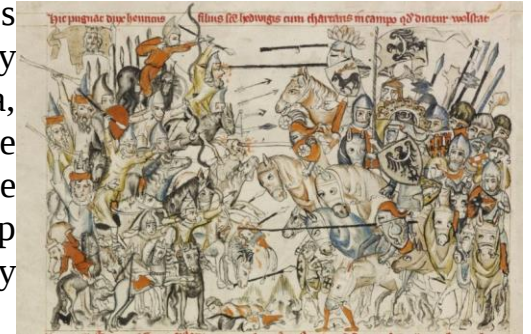 s
y
a,
e
e
p
y
Hic pugnat dux heinricus filius sce hedwigis cum thartaris in campo qd dicitur wolstat